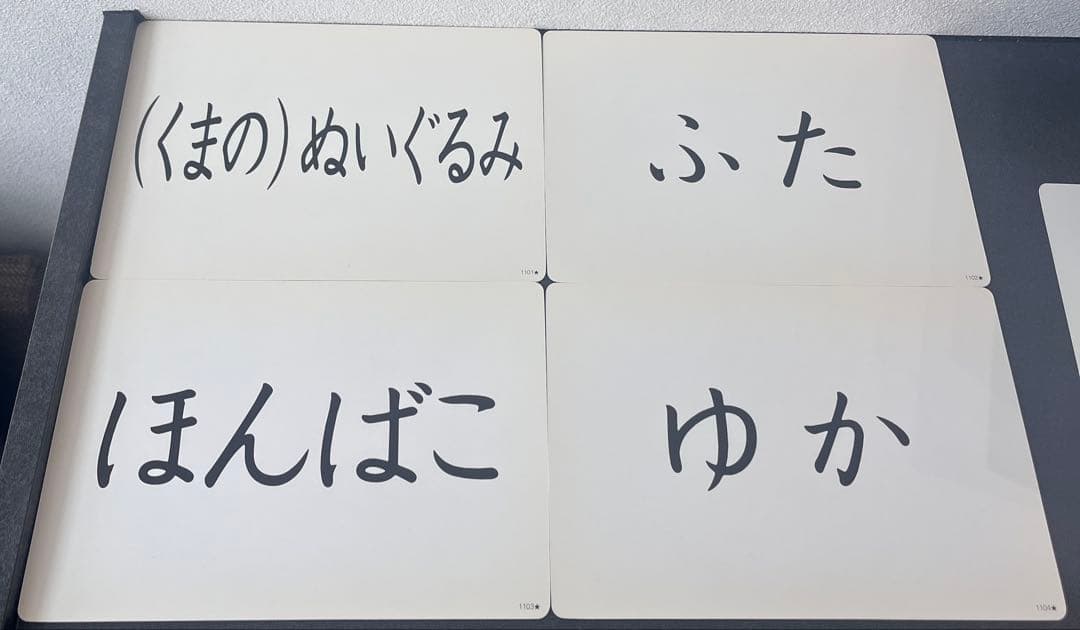 (くまの)ぬいぐるみ
1101★
ふた
1102★
ほんばこ
1103★
ゆか
1104★